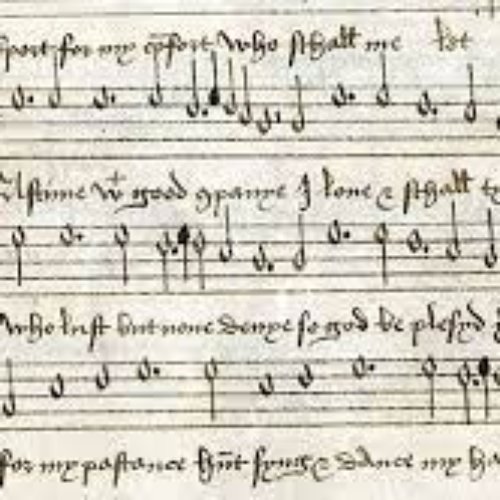 sport for my cōfort who schall me let
Pastime wt good ꝯpanye I loue & schall
who lust but none denye so god be plesyd
for my pastance hūt syng & dance my ha